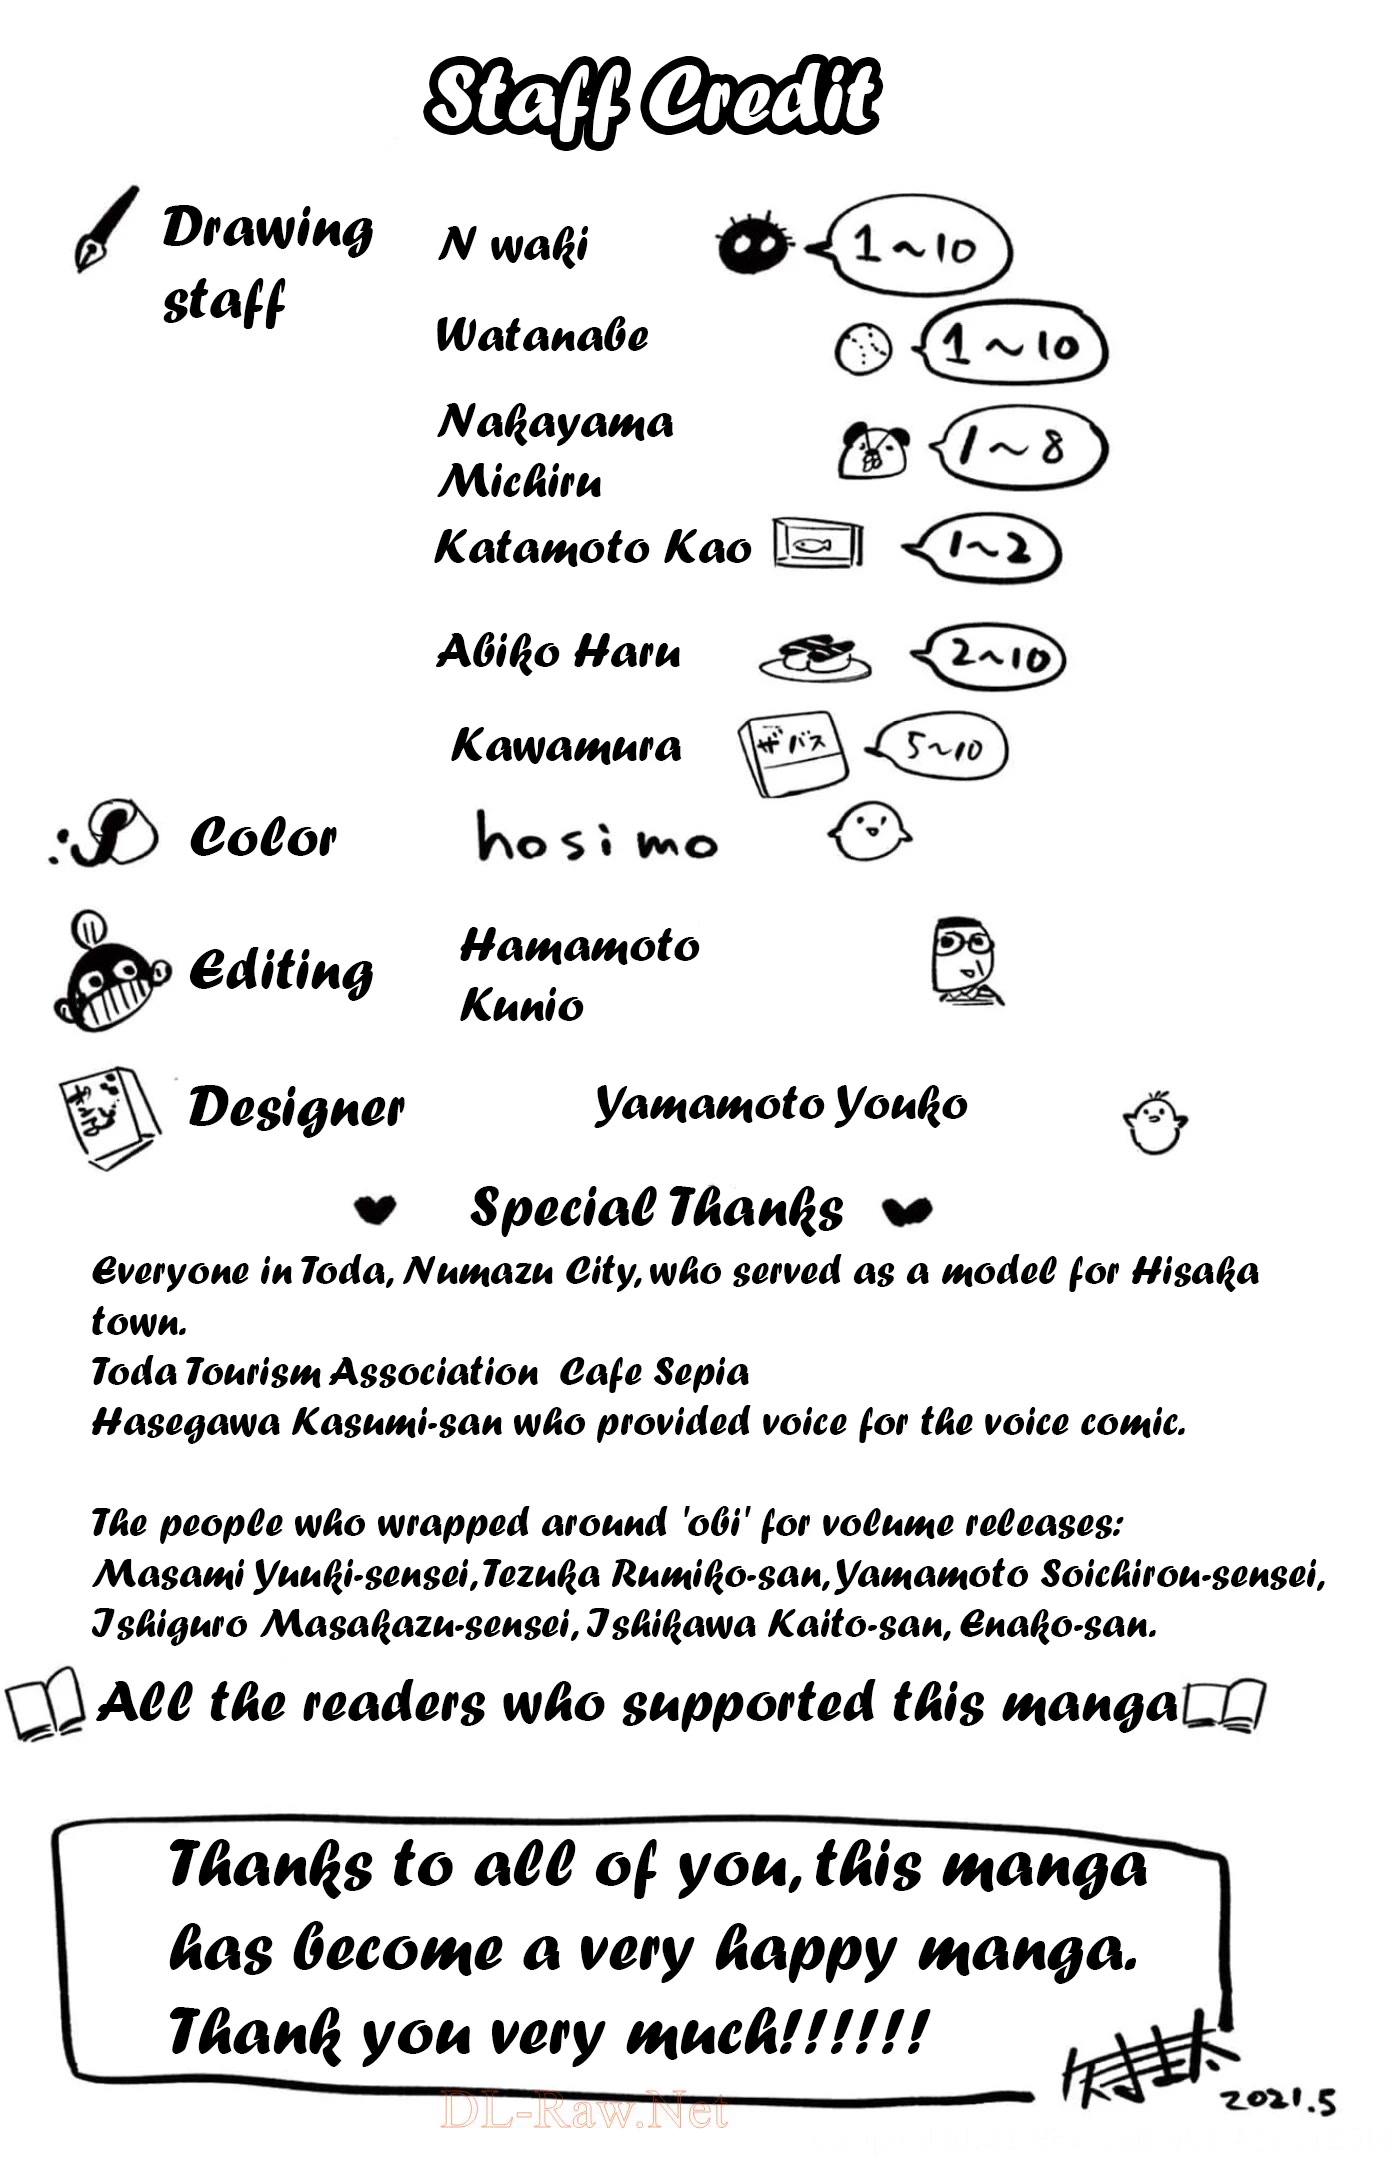 Staff Credit
Drawing staff
N waki
1~10
Watanabe
1~10
Nakayama
Michiru
1~8
Katamoto Kao
1~2
Abiko Haru
2~10
Kawamura
ザバス
5~10
Color
hosimo
Editing
Hamamoto
Kunio
Designer
Yamamoto Youko
Special Thanks
Everyone in Toda, Numazu City, who served as a model for Hisaka
town.
Toda Tourism Association Cafe Sepia
Hasegawa Kasumi-san who provided voice for the voice comic.
The people who wrapped around 'obi' for volume releases:
Masami Yuuki-sensei, Tezuka Rumiko-san, Yamamoto Soichirou-sensei,
Ishiguro Masakazu-sensei, Ishikawa Kaito-san, Enako-san.
All the readers who supported this manga
Thanks to all of you, this manga
has become a very happy manga.
Thank you very much!!!!!!
2021.5
DL-Raw.Net